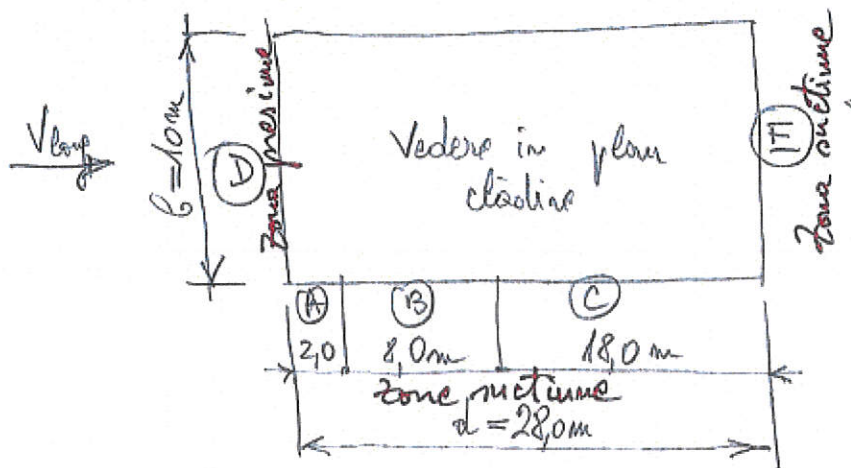 V long
b=10m
D
zona presiune
Vedere in plan
clădire
E
zona suctiune
A
B
C
2,0
8,0m
18,0m
zone suctiune
d=28,0m